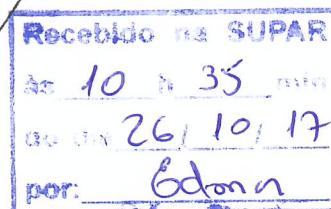 Recebido na SUPAR
às 10 h 35 min
do dia 26/ 10/ 17
por: Edna